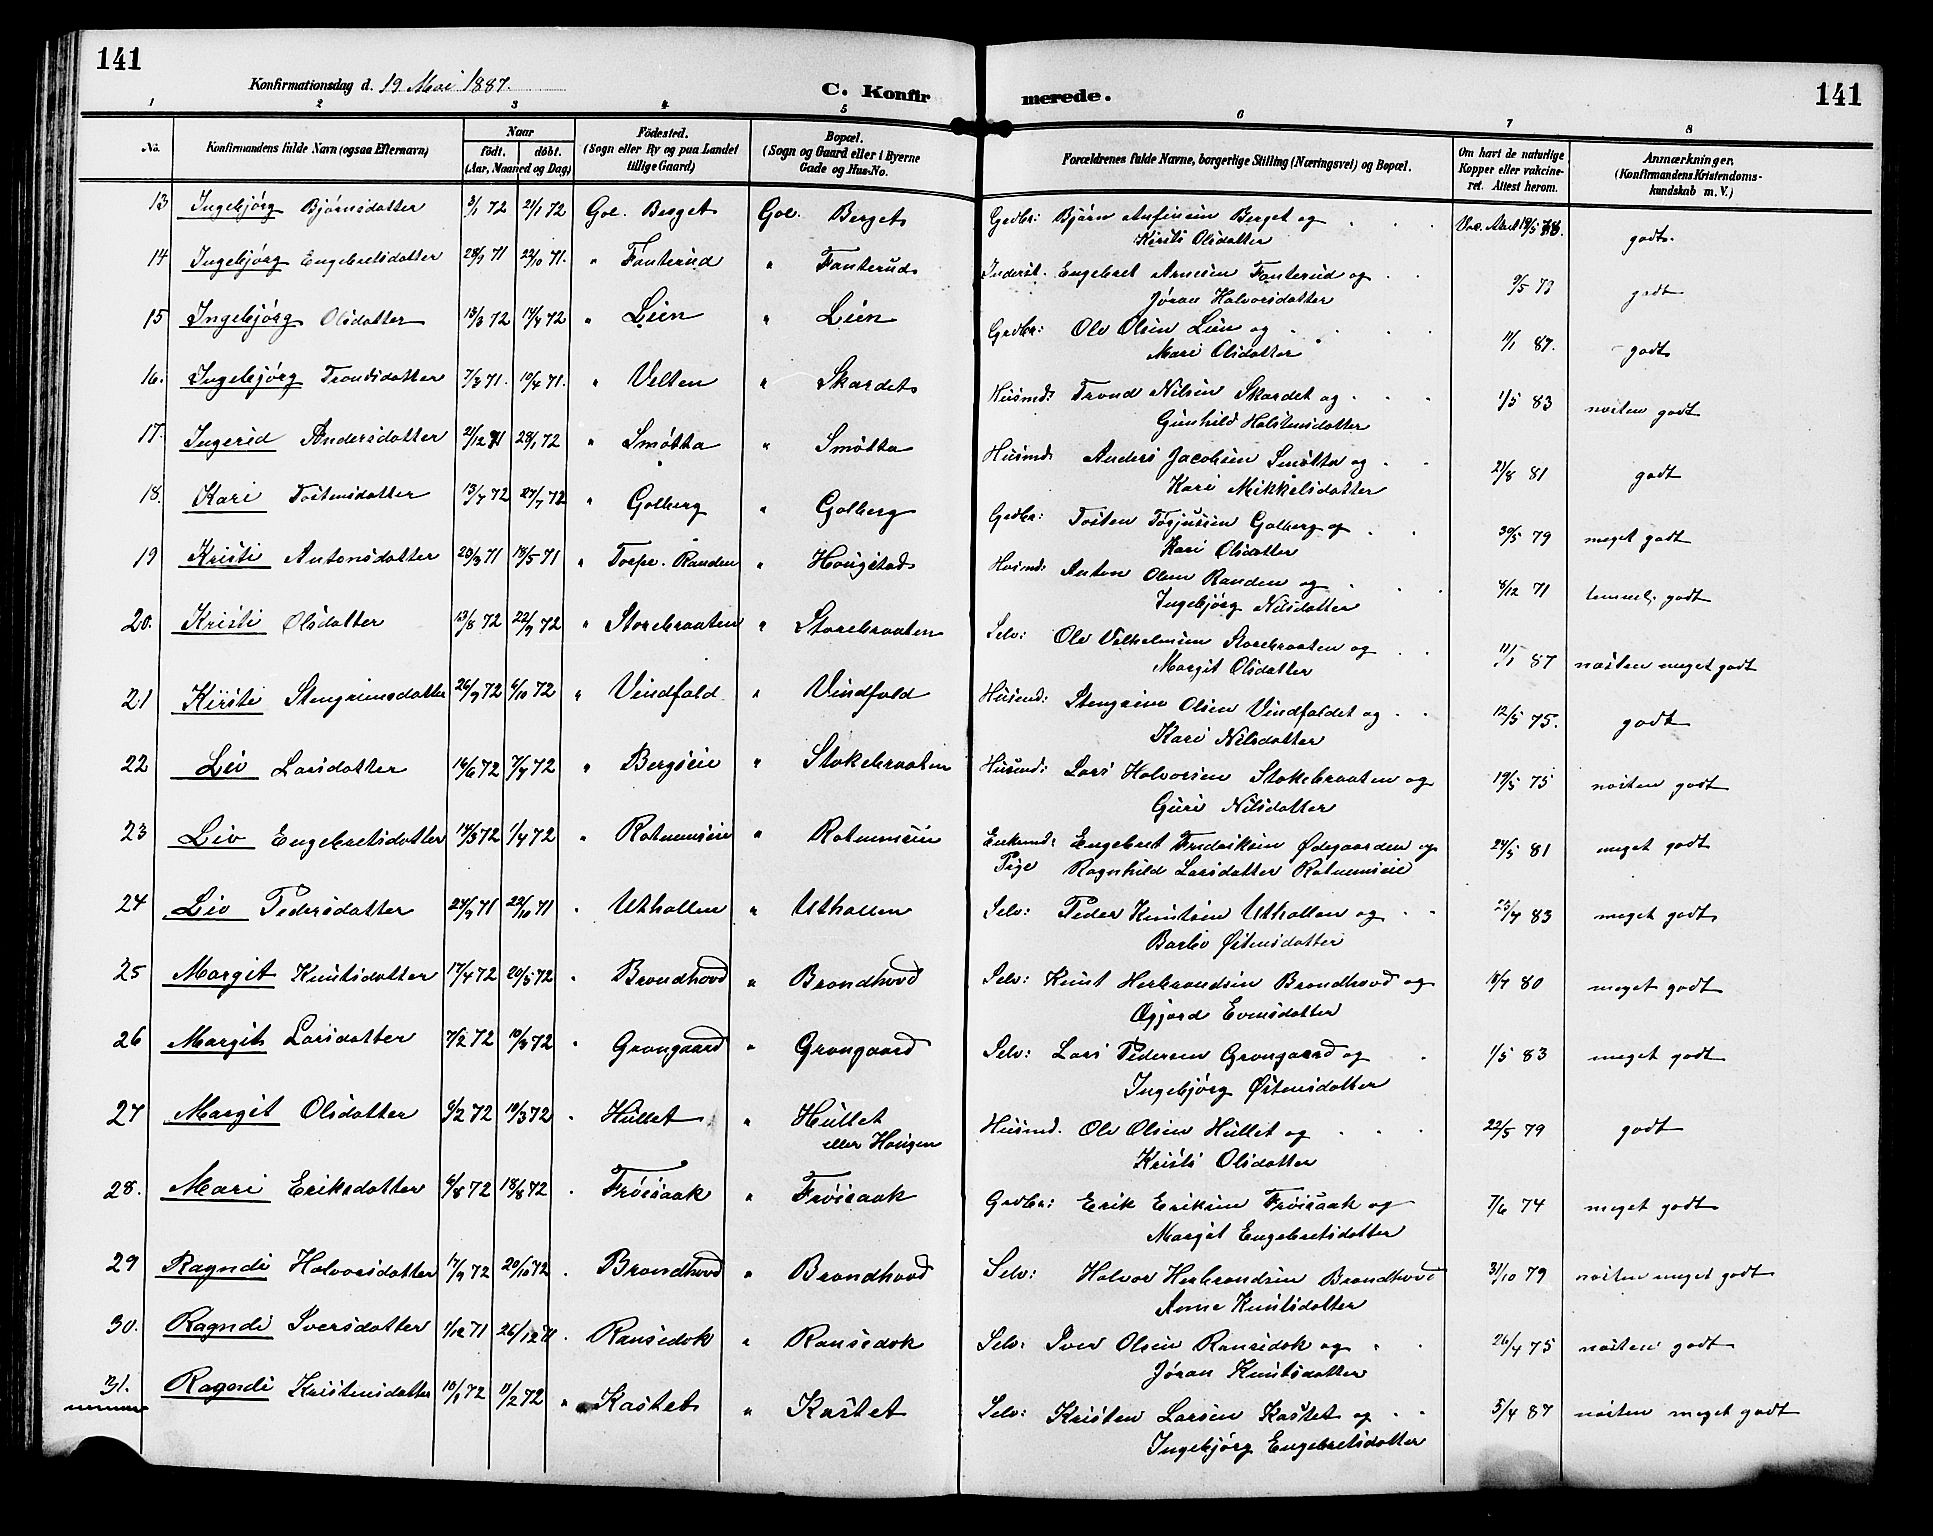 141
Konfirmationsdag d. 19 Mai 1887.
C. Konfirmerede.
141
1 2 3 4 5 6 7 8
No.
Konfirmandens fulde Navn (ogsaa Efternavn)
Naar
födt. döbt.
(Aar, Maaned og Dag)
Födested.
(Sogn eller By og paa Landet
tillige Gaard)
Bopæl.
(Sogn og Gaard eller i Byerne
Gade og Hus-No.
Forældrenes fulde Navne, borgerlige Stilling (Næringsvei) og Bopæl.
Om havt de naturlige
Kopper eller vakcine-
ret. Attest herom.
Anmærkninger.
(Konfirmandens Kristendoms-
kundskab m. V.)
13 Ingebjörg Bjørnsdatter 3/1 72 21/1 72 Gol. Berget Gol. Berget Grdbr: Björn Anfinsen Berget og godt.
Kirsti Olsdatter
14 Ingebjörg Engebretsdatter 28/9 71 22/10 71. " Fonterud " Fonterud Inderst. Engebret Arnesen Fonterud og godt
Jøran Halvorsdatter
15 Ingebjörg Olsdatter 13/3 72 14/4 72 " Lien " Lien Grdbr: Ole Olsen Lien og 11/1 87. godt
Mari Olsdatter
16. Ingebjörg Trondsdatter 7/3 71. 10/4 71. " Velten " Skardet Husmd: Trond Nilsen Skardet og 1/5 83 næsten godt
Gunhild Halstensdatter
17. Ingerid Andersdatter 21/12 71 28/1 72 " Smötta " Smötta Husmd: Anders Jacobsen Smötta og 21/8 81 godt
Kari Mikkelsdatter
18. Kari Tostensdatter 13/7 72 27/7 72 " Golberg " Golberg Grdbr: Tosten Torjusen Golberg og 30/5 79 meget godt
Kari Olsdatter
19 Kristi Antonsdatter 23/3 71 18/5 71 " Torpe. Randen " Hougstad Husmd: Anton Olsen Randen og 8/12 71 temmeli. godt
Ingebjörg Nilsdatter
20. Kristi Olsdatter 13/8 72 22/9 72 " Storebraaten " Storebraaten Selv: Ole Vilhelmsen Storebraaten og 11/1 87 næsten meget godt
Margit Olsdatter
21 Kirsti Stengrimsdatter 26/9 72 6/10 72 " Vindfald " Vindfald Husmd: Stengrim Olsen Vindfaldet og 12/5 75. godt
Kari Nilsdatter
22 Liv Larsdatter 16/6 72 7/7 72 " Bergseie " Stokebraaten Husmd: Lars Halvorsen Stokebraaten og 19/5 75 næsten godt
Guri Nilsdatter
23 Liv Engebretsdatter 14/3 72 1/4 72 " Rotnemseie " Rotnemseie Enkemd: Engebret Fredriksen Ødegaarden og 24/5 81 meget godt
Pige Ragnhild Larsdatter Rotnemseie
24 Liv Pedersdatter 24/9 71 22/10 71 " Uthallen " Uthallen Selv: Peder Knutsen Uthallen og 23/4 83 meget godt
Barbo Östensdatter
25 Margit Knutsdatter 17/4 72 20/5 72 " Brandhovd " Brandhovd Selv: Knut Herbrandsen Brandhovd og 18/7 80 meget godt
Øgjørd Evensdatter
26 Margit Larsdatter 7/2 72 10/3 72 " Grøngaard " Grøngaard Selv: Lars Pedersen Grøngaard og 1/5 83 meget godt
Ingebjörg Östensdatter
27 Margit Olsdatter 9/2 72 10/3 72 " Hullet " Hullet Husmd. Ole Olsen Hullet og 22/5 79 godt
eller Haugen Kristi Olsdatter
28. Mari Eriksdatter 8/8 72 18/8 72 " Fröisaak " Fröisaak Grdbr: Erik Eriksen Fröisaak og 7/6 74 meget godt
Margit Engebretsdatter
29 Ragndi Halvorsdatter 17/9 72 20/10 72 " Brandhovd " Brandhovd Selv: Halvor Herbrandsen Brandhovd 31/10 79 næsten meget godt
Anne Knutsdatter
30. Ragndi Iversdatter 1/12 71 26/12 71 " Ransedok " Ransedok Selv: Iver Olsen Ransedok og 26/4 75 næsten godt
Jøran Knutsdatter
31. Ragndi Kristensdatter 10/1 72 11/2 72 " Kastet " Kastet Selv: Kristen Larsen Kastet og 5/4 87 næsten meget godt
Ingebjörg Engebretsdatter